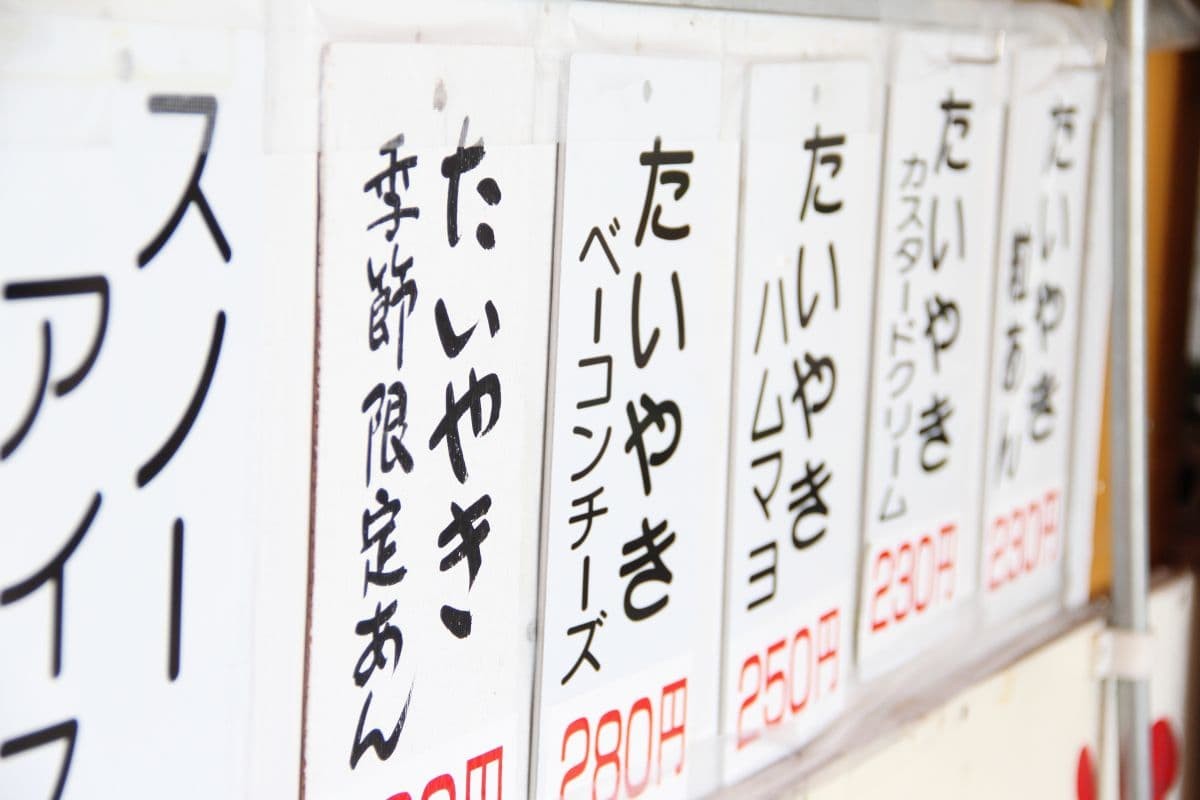 たいやき
粒あん
230円
たいやき
カスタードクリーム
230円
たいやき
ハムマヨ
250円
たいやき
ベーコンチーズ
280円
たいやき
季節限定あん
0円
スノー
アイス